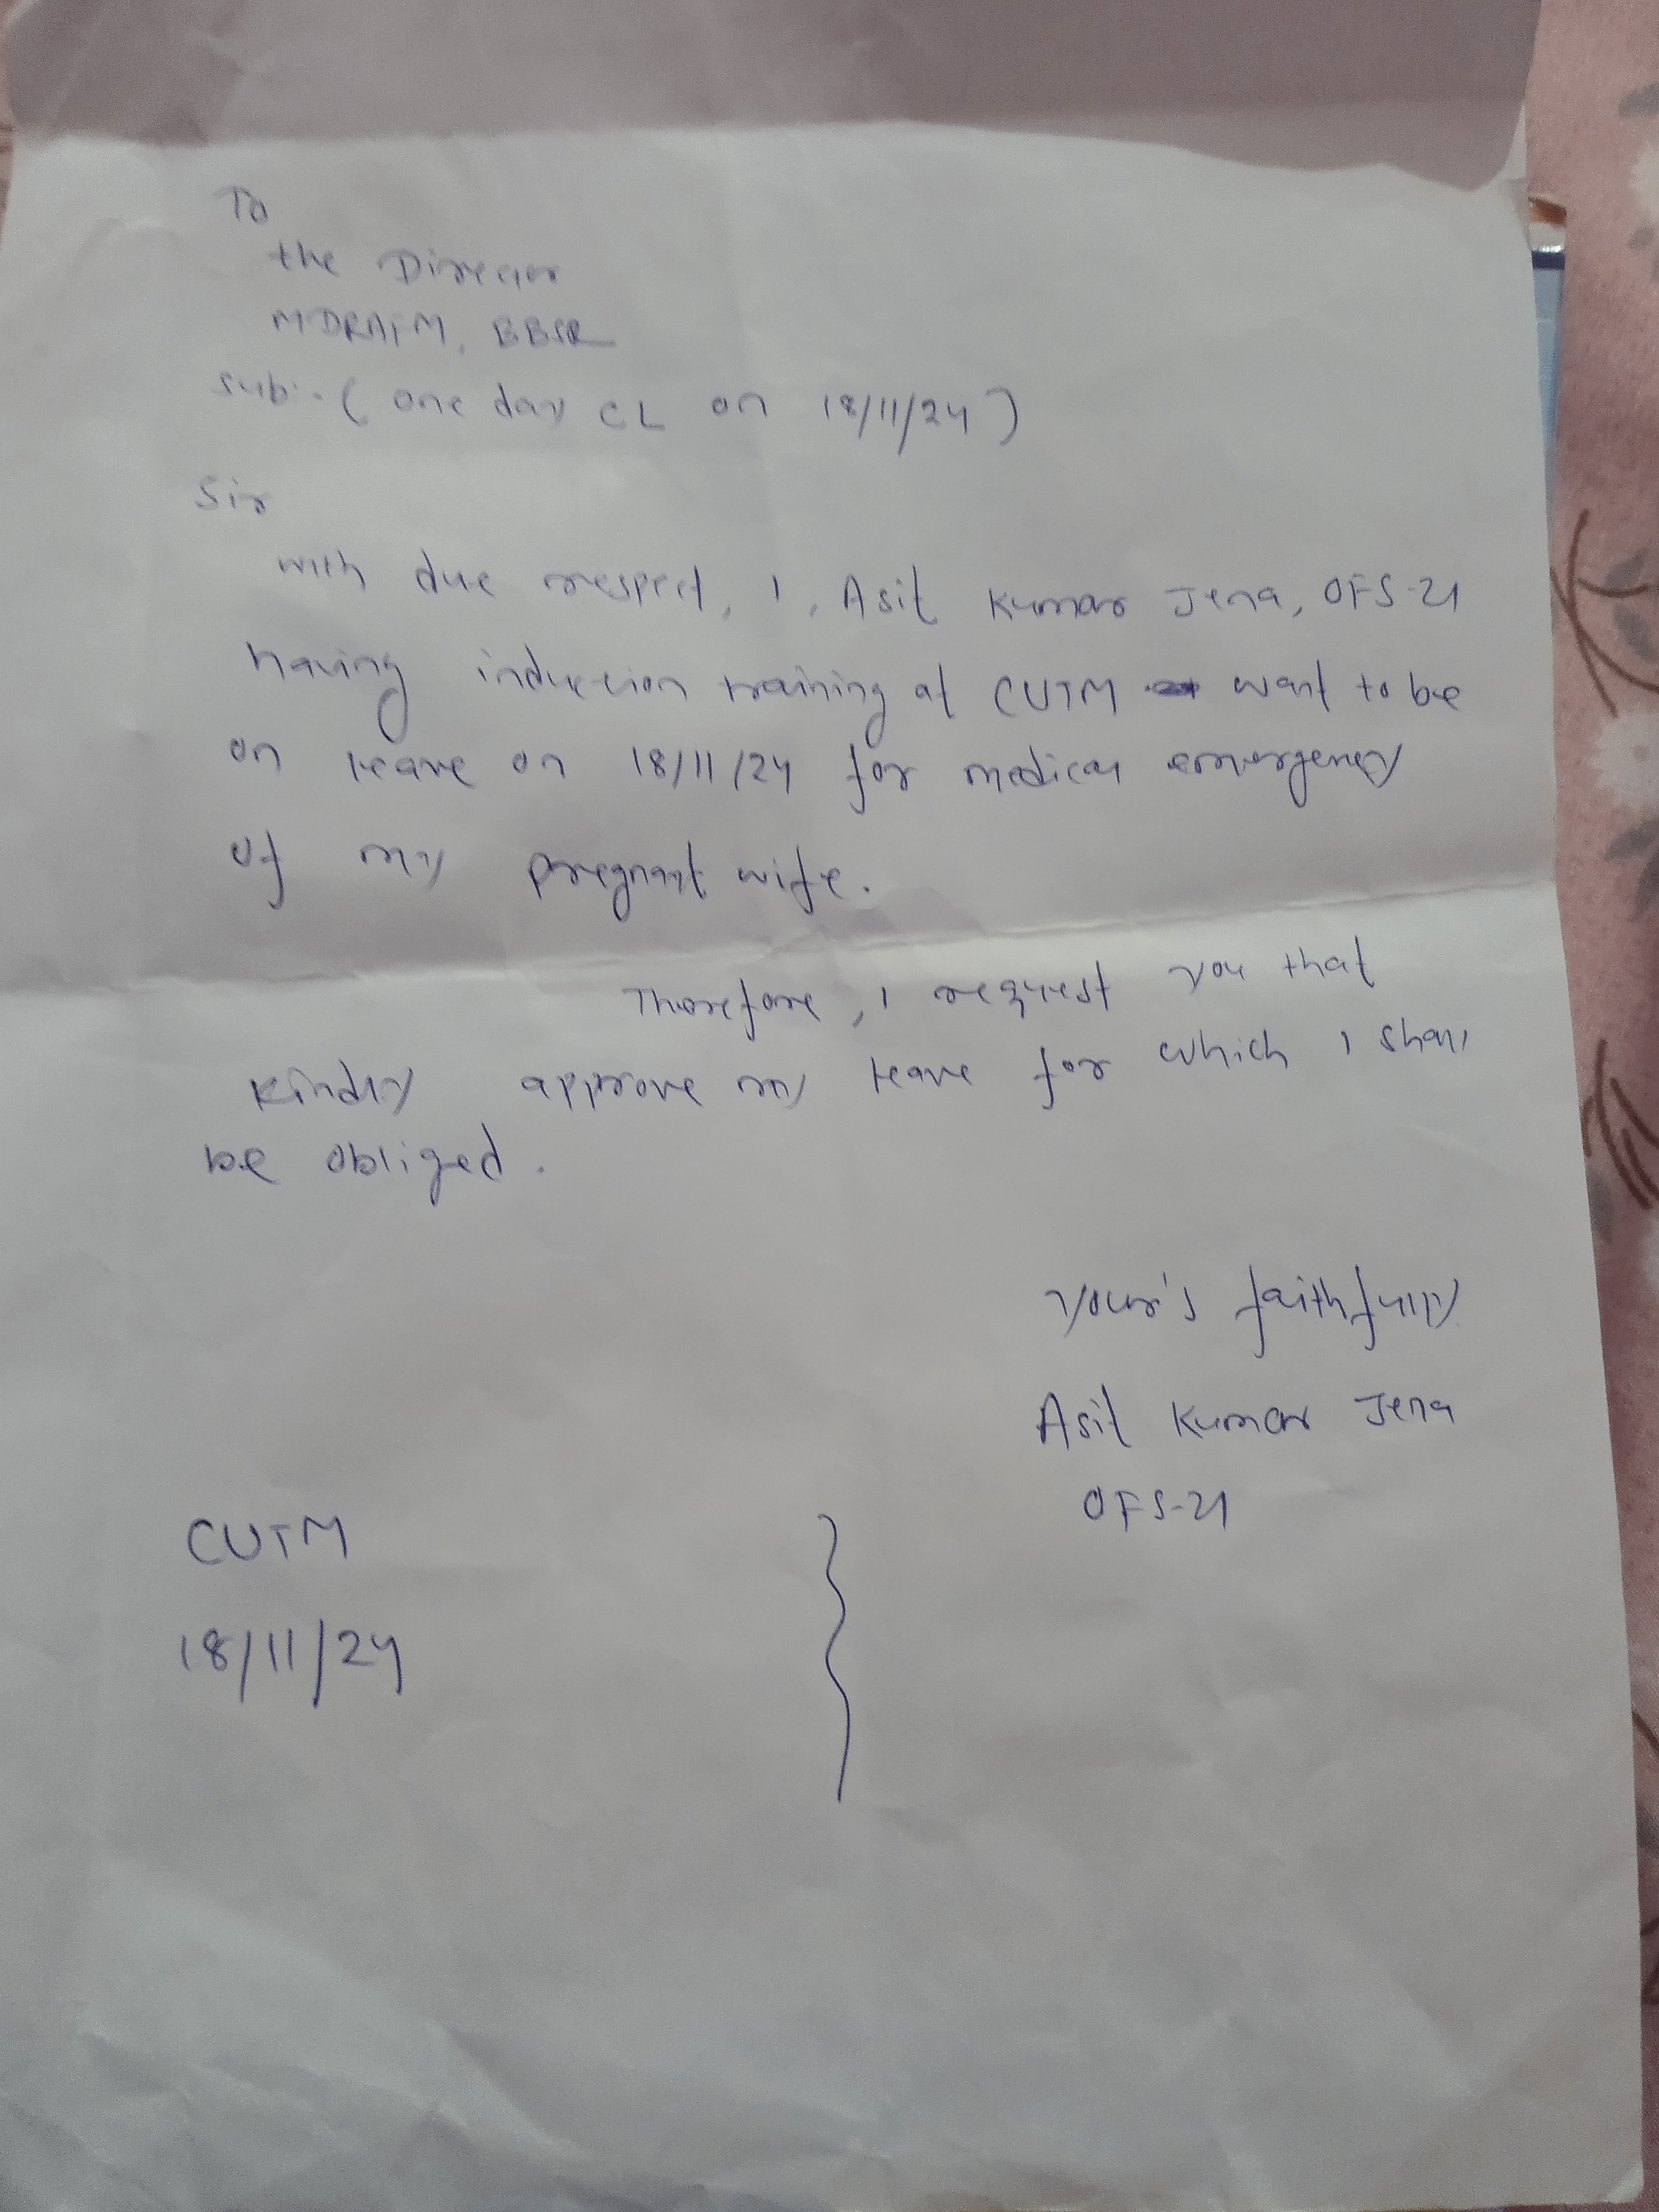 To
the Director
MDRAFM, BBSR
Sub:- (one day CL on 18/11/24)
Sir
with due respect, I, Asit Kumar Jena, OFS-21
having induction training at CUTM want to be
on leave on 18/11/24 for medical emergency
of my pregnant wife.
Therefore, I request you that
kindly approve my leave for which I shall
be obliged.
Your's faithfully
Asit Kumar Jena
OFS-21
CUTM
18/11/24